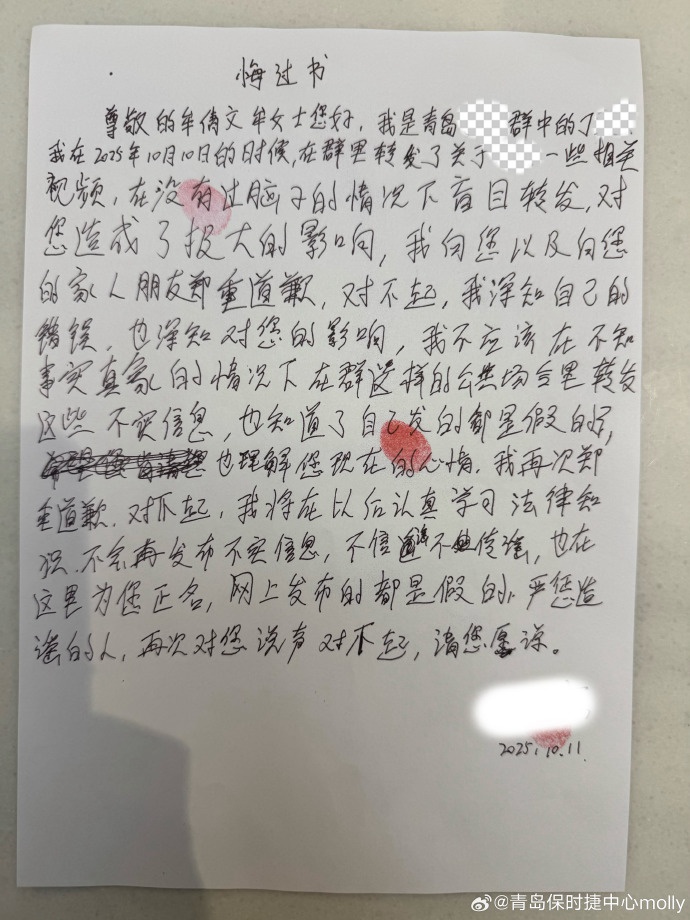 悔过书
尊敬的牟倩文牟女士您好，我是青岛 群中的丁
我在2025年10月10日的时候，在群里转发了关于 一些相关
视频，在没有过脑子的情况下盲目转发，对
您造成了极大的影响，我向您以及向您
的家人朋友郑重道歉，对不起，我深知自己的
错误，也深知对您的影响，我不应该在不知
事实真象的情况下在群这样的公共场合里转发
这些不实信息，也知道了自己发的都是假的，
也理解您现在的心情，我再次郑
重道歉，对不起，我将在以后认真学习法律知
识，不会再发布不实信息，不信谣不传谣，也在
这里为您正名，网上发布的都是假的，严惩造
谣的人，再次对您说声对不起，请您原谅。
2025.10.11.
@青岛保时捷中心molly